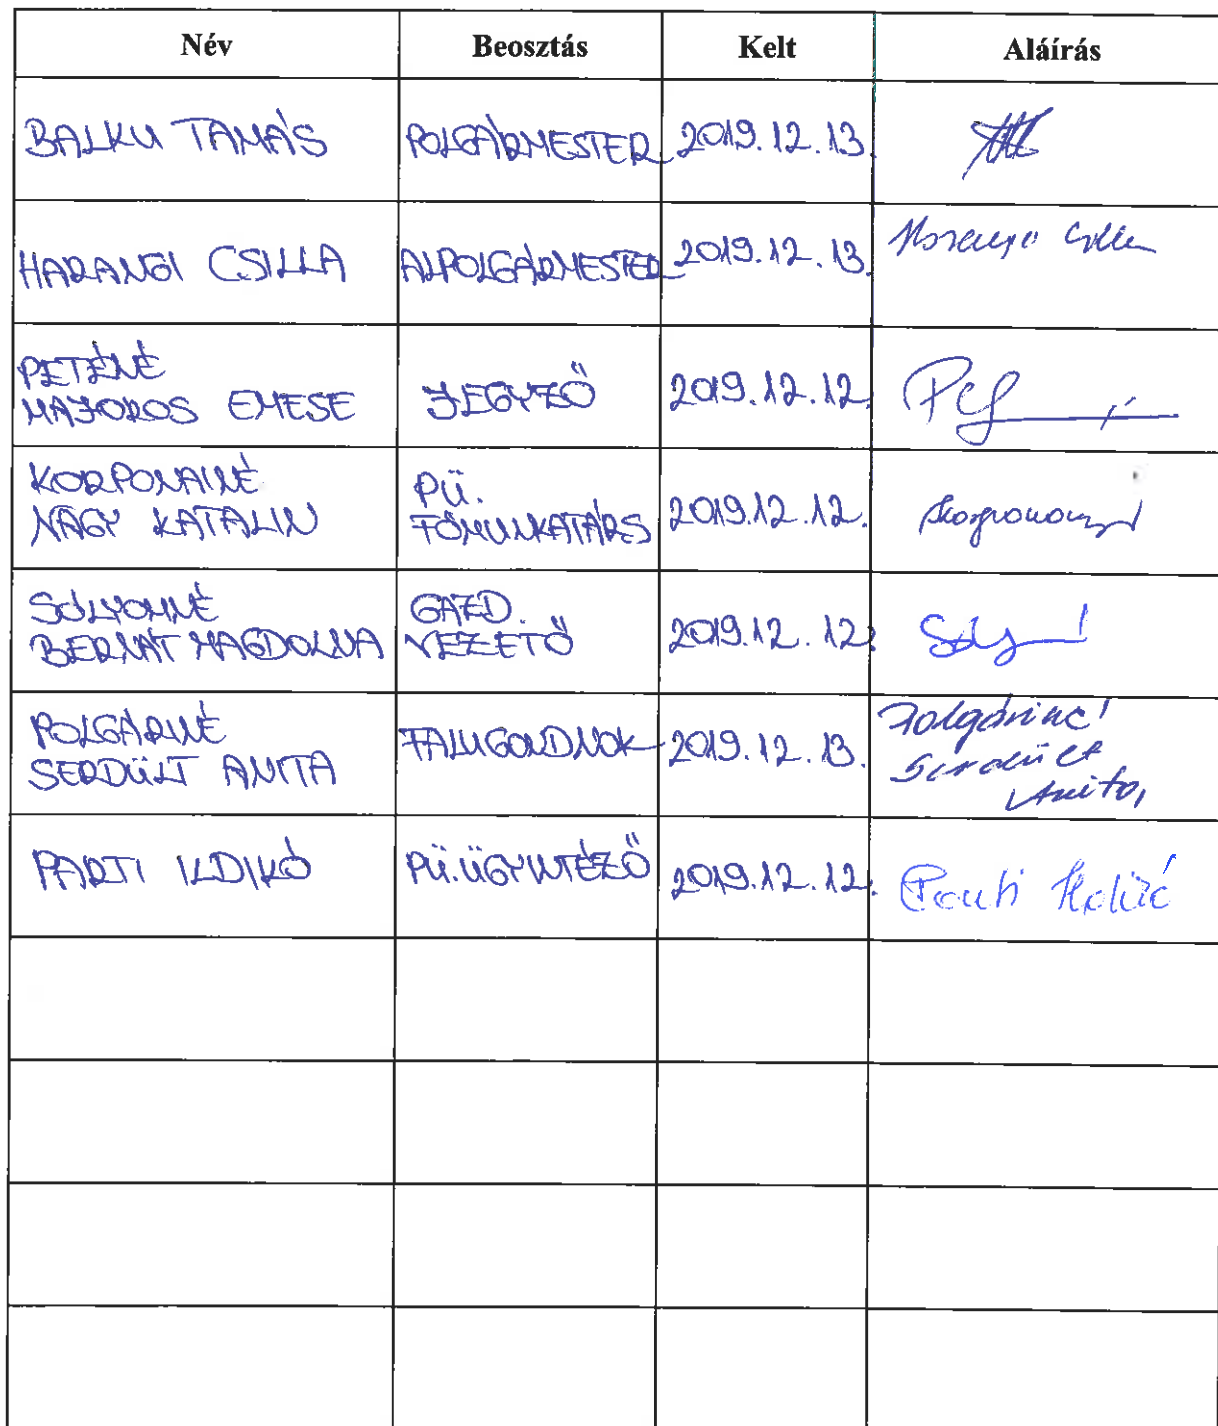 Név Beosztás Kelt Aláírás
BALKU TAMÁS POLGÁRMESTER 2019.12.13.
HARANGI CSILLA ALPOLGÁRMESTER 2019.12.13. Harangi Csilla
PETÉNÉ
MAJOROS EMESE JEGYZŐ 2019.12.12.
KORPONAINÉ PÜ.
NAGY KATALIN FŐMUNKATÁRS 2019.12.12.
SÓLYOMNÉ GAZD.
BERNÁT MAGDOLNA VEZETŐ 2019.12.12.
POLGÁRNÉ FALUGONDNOK 2019.12.13. Polgárné
SERDÜLT ANITA Serdült
Anita
PARTI ILDIKÓ PÜ.ÜGYINTÉZŐ 2019.12.12. Parti Ildikó